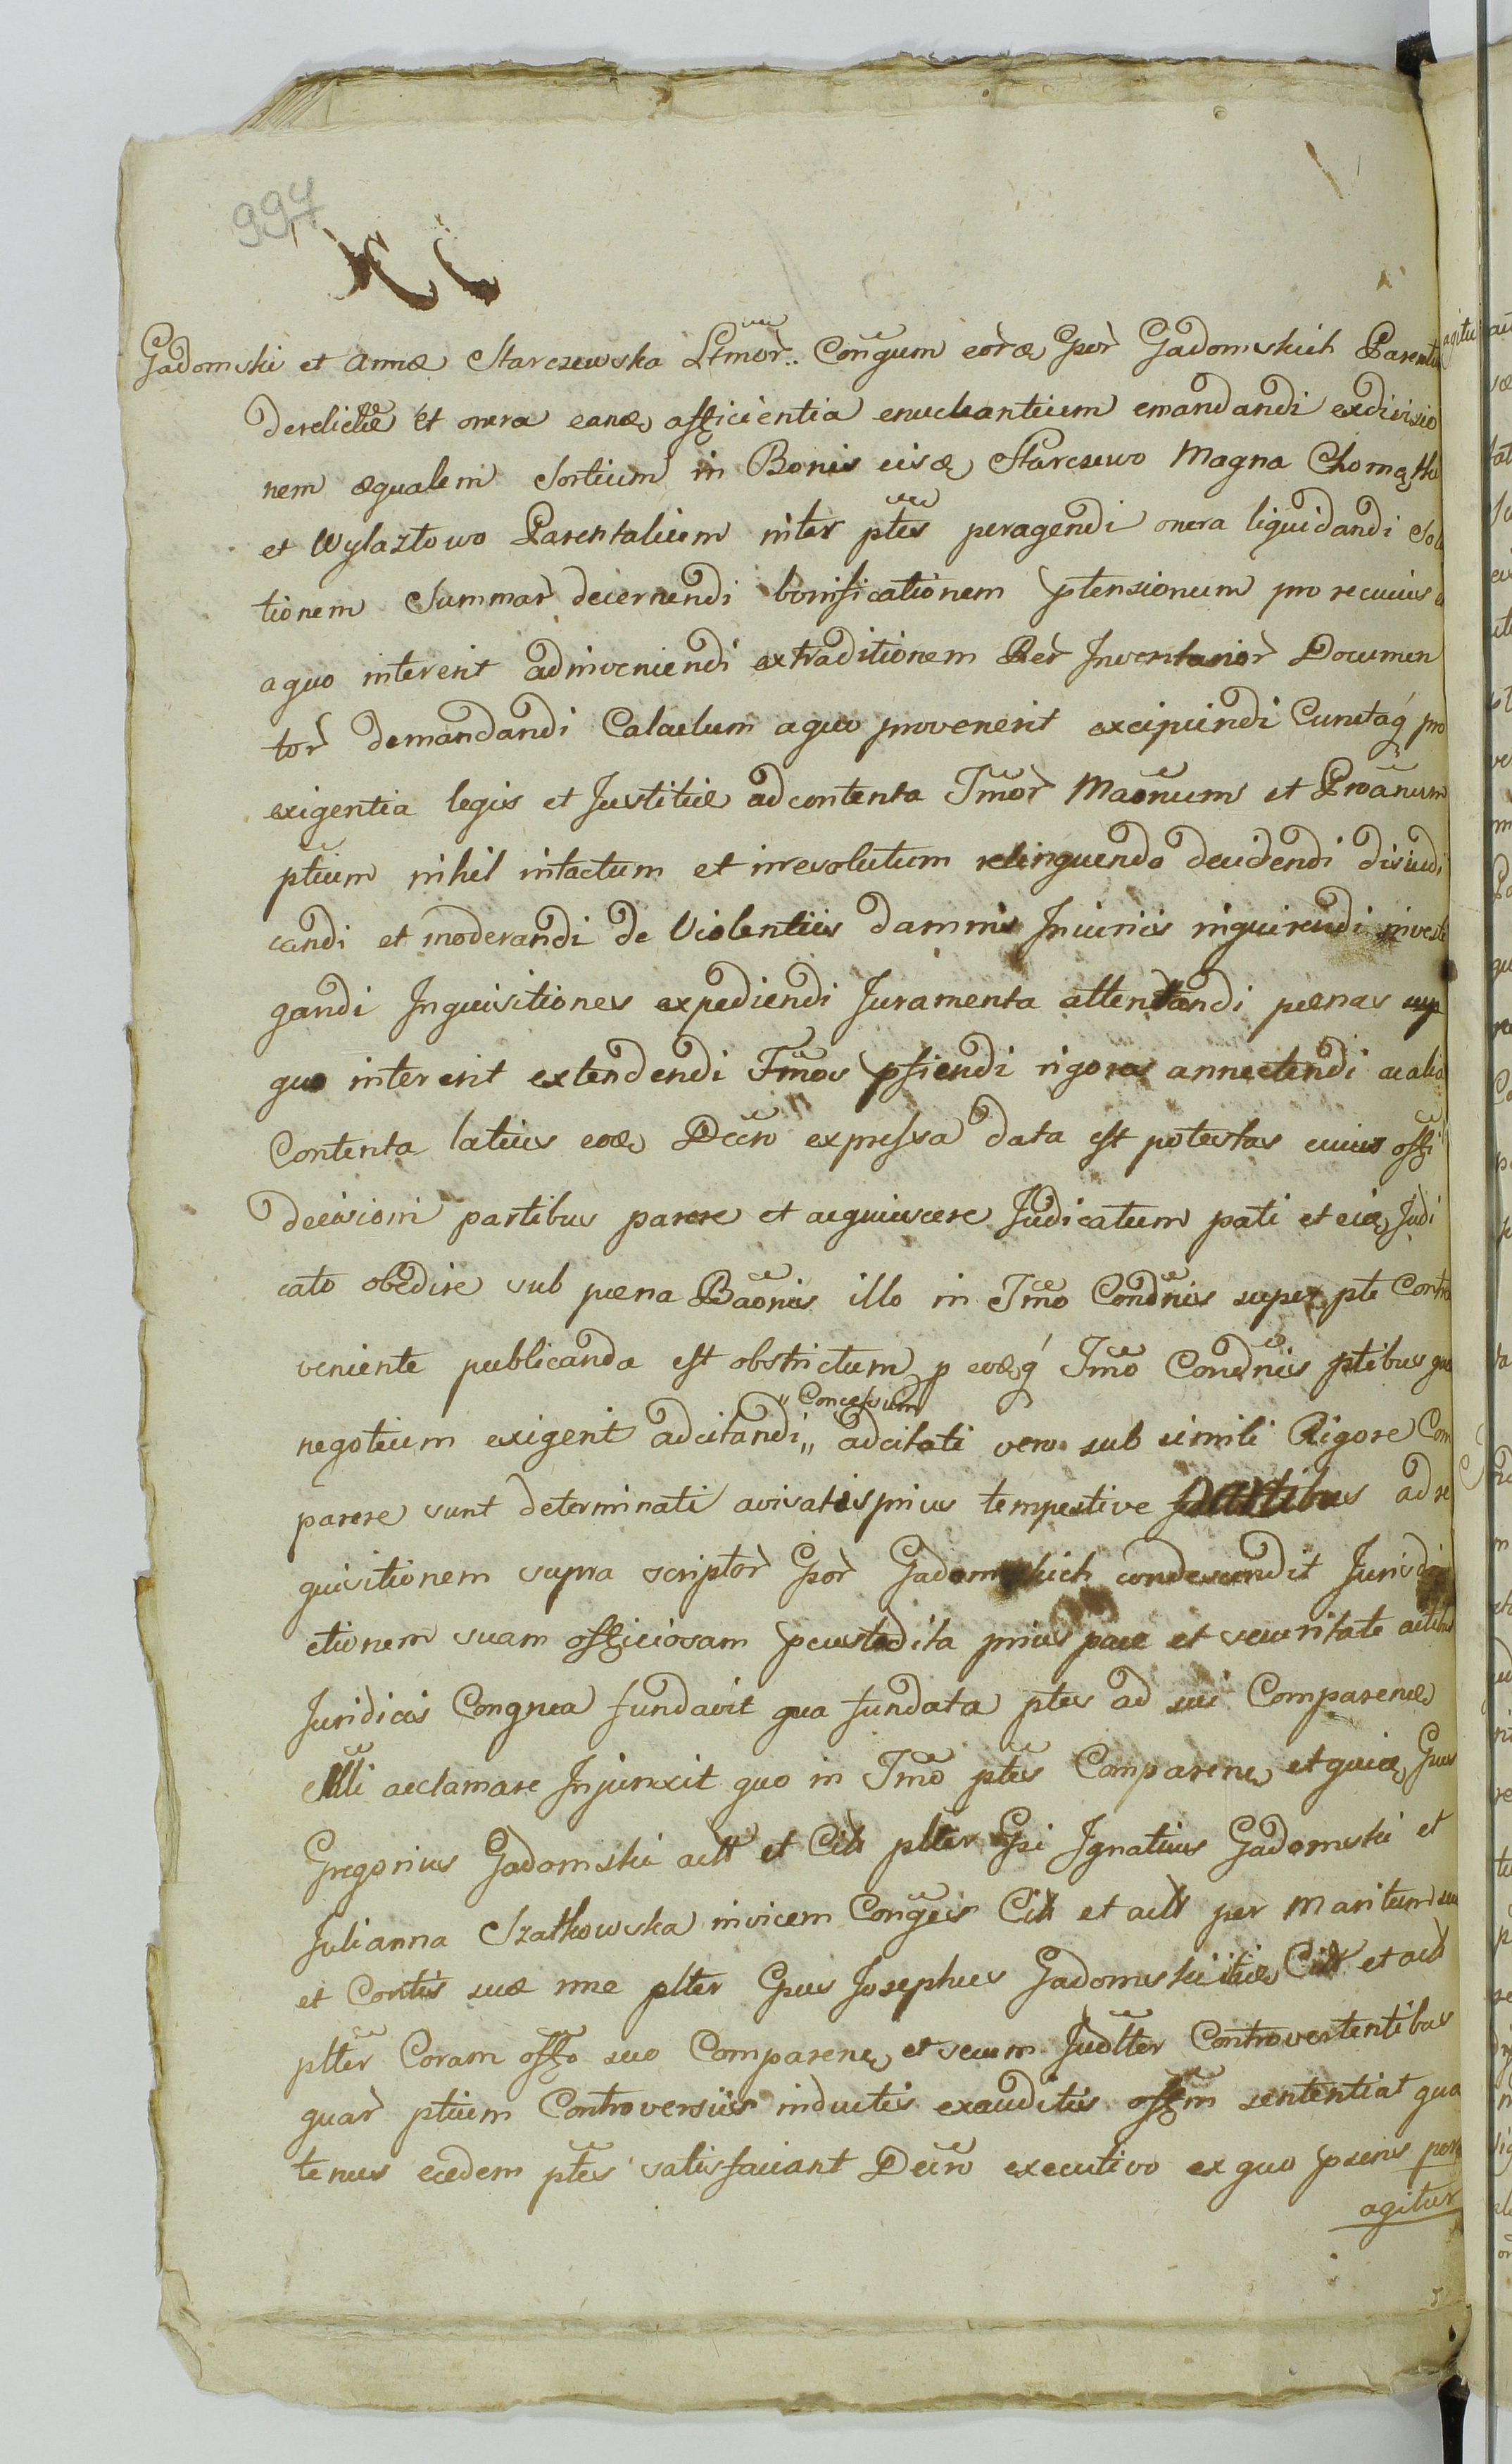 994
Gadomski et Annæ Starczewska Ltmor̃ Conĝum eor̃dę Gsor̃ Gadomskich Parentu
derelictæ et onera eandę afficientia enucleantium emandandi exdivisio
nem æqualem Sortium in Bonis eisdę Starczewo Magna Chomętki
et Wylaztowo Parentalium inter ptes peragendi onera liquidandi Solu
tionem Summar̃ decernendi bonificationem ptensionum pro re cuius
a quo intererit adinveniendi extraditionem Rer̃ Inventarior̃ Documen
tor̃ demandandi Calculum a quo provenerit excipiendi Cunctaq́ pro
exigentia legis et Justitiæ ad contenta Tmor̃ Maõnum et Proãnum
ptium nihil intactum et irresolutum relinquendo decidendi disiudi
candi et moderandi de Violentiis damnis Iniuriis inquirendi investi
gandi Inquisitiones expediendi Juramenta attentandi pœnas sup
quo intererit extendendi Tmos pfiendi rigores annectendi ac alia
Contenta latius eodę Dcro expressa data est potestas cuius offi
decisioni partibus parere et acquiescere Judicatum pati et eidę Judi
cato obedire sub pœna Baõnis illo in Tmo Condnis super pte Contra
veniente publicanda est obstrictum p eodęq́ Tmo Condnis ptibus quas
negotium exigerit adcitandi „ adcitati vero sub simili Rigore Com
"Concessum
parere sunt determinati avisatis prius tempestive partibus ad re
quisitionem supra scriptor̃ Gsor̃ Gadomskich condescendit Jurisdi
ctionem suam officiosam pcustodita prius pace et securitate actibus
Juridicis Congrua fundavit qua fundata ptes ad sui Comparenę
Mlli acclamare Injunxit quo in Tmo ptes Comparenę et quidę Gsus
Gregorius Gadomski actt et Citt pltter Gsi Ignatius Gadomski et
Julianna Szatkowska invicem Conĝes Citt et actt per Maritum suu
et Contis suæ nne pltter Gsus Josephus Gadomski itidę Citt et actt
pltter Coram offo suo Comparenę et secum Judltter Controvertentibus
quar̃ ptium Controversiis inductis exauditis offm sententiat qua
tenus eædem ptes satisfaciant Dcro executivo ex quo psens per
agitur